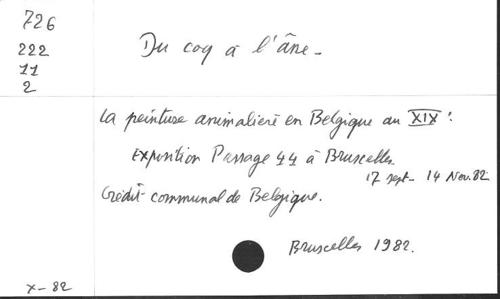 726
222
11
2
Du coq à l'âne.
La peinture animalière en Belgique au XIXe:
Exposition Passage 44 à Bruxelles.
17 sept - 14 Nov. 82
Crédit communal de Belgique.
Bruxelles 1982.
x-82